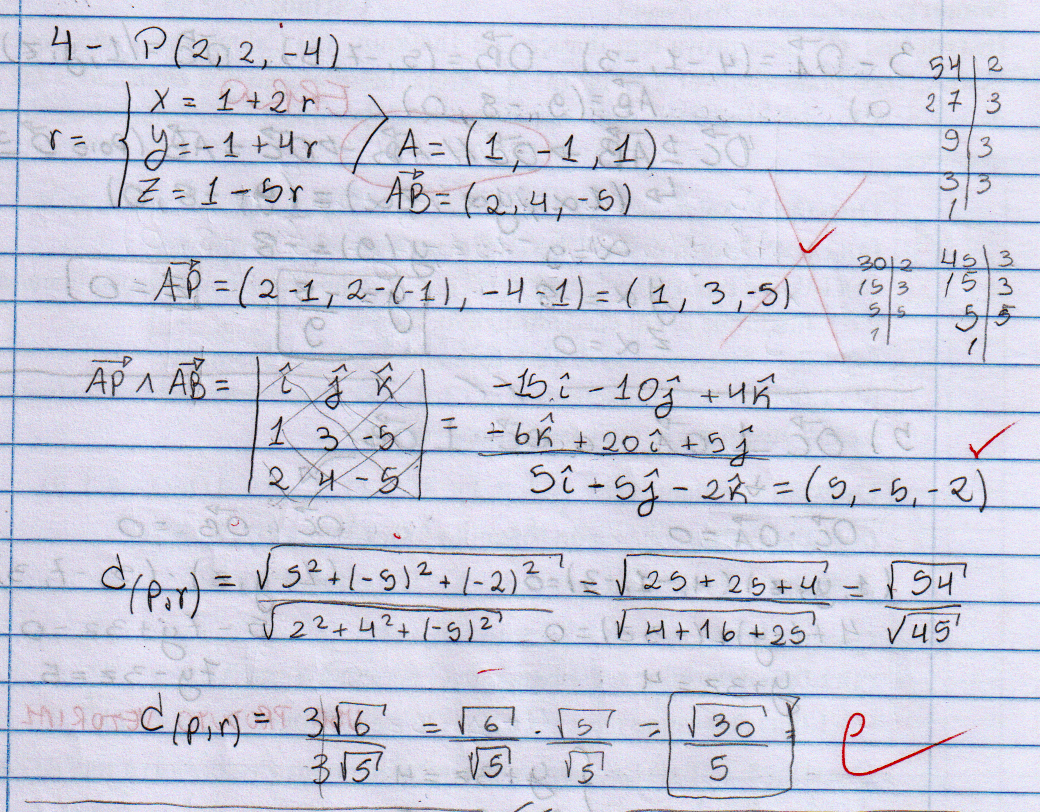 4 - P(2, 2, -4)
r = { x = 1 + 2r
y = -1 + 4r
z = 1 - 5r
A = (1, -1, 1)
AB = (2, 4, -5)
54 | 2
27 | 3
9 | 3
3 | 3
1
AP = (2-1, 2-(-1), -4-1) = (1, 3, -5)
30 | 2
15 | 3
5 | 5
1
45 | 3
15 | 3
5 | 5
1
AP ∧ AB = | î ĵ k̂ |
| 1 3 -5 |
| 2 4 -5 |
= -15î - 10ĵ + 4k̂
- 6k̂ + 20î + 5ĵ
5î - 5ĵ - 2k̂ = (5, -5, -2)
d(P,r) = √(5² + (-5)² + (-2)²) / √(2² + 4² + (-5)²) = √(25 + 25 + 4) / √(4 + 16 + 25) = √54 / √45
d(P,r) = 3√6 / 3√5 = √6 / √5 · √5 / √5 = √30 / 5